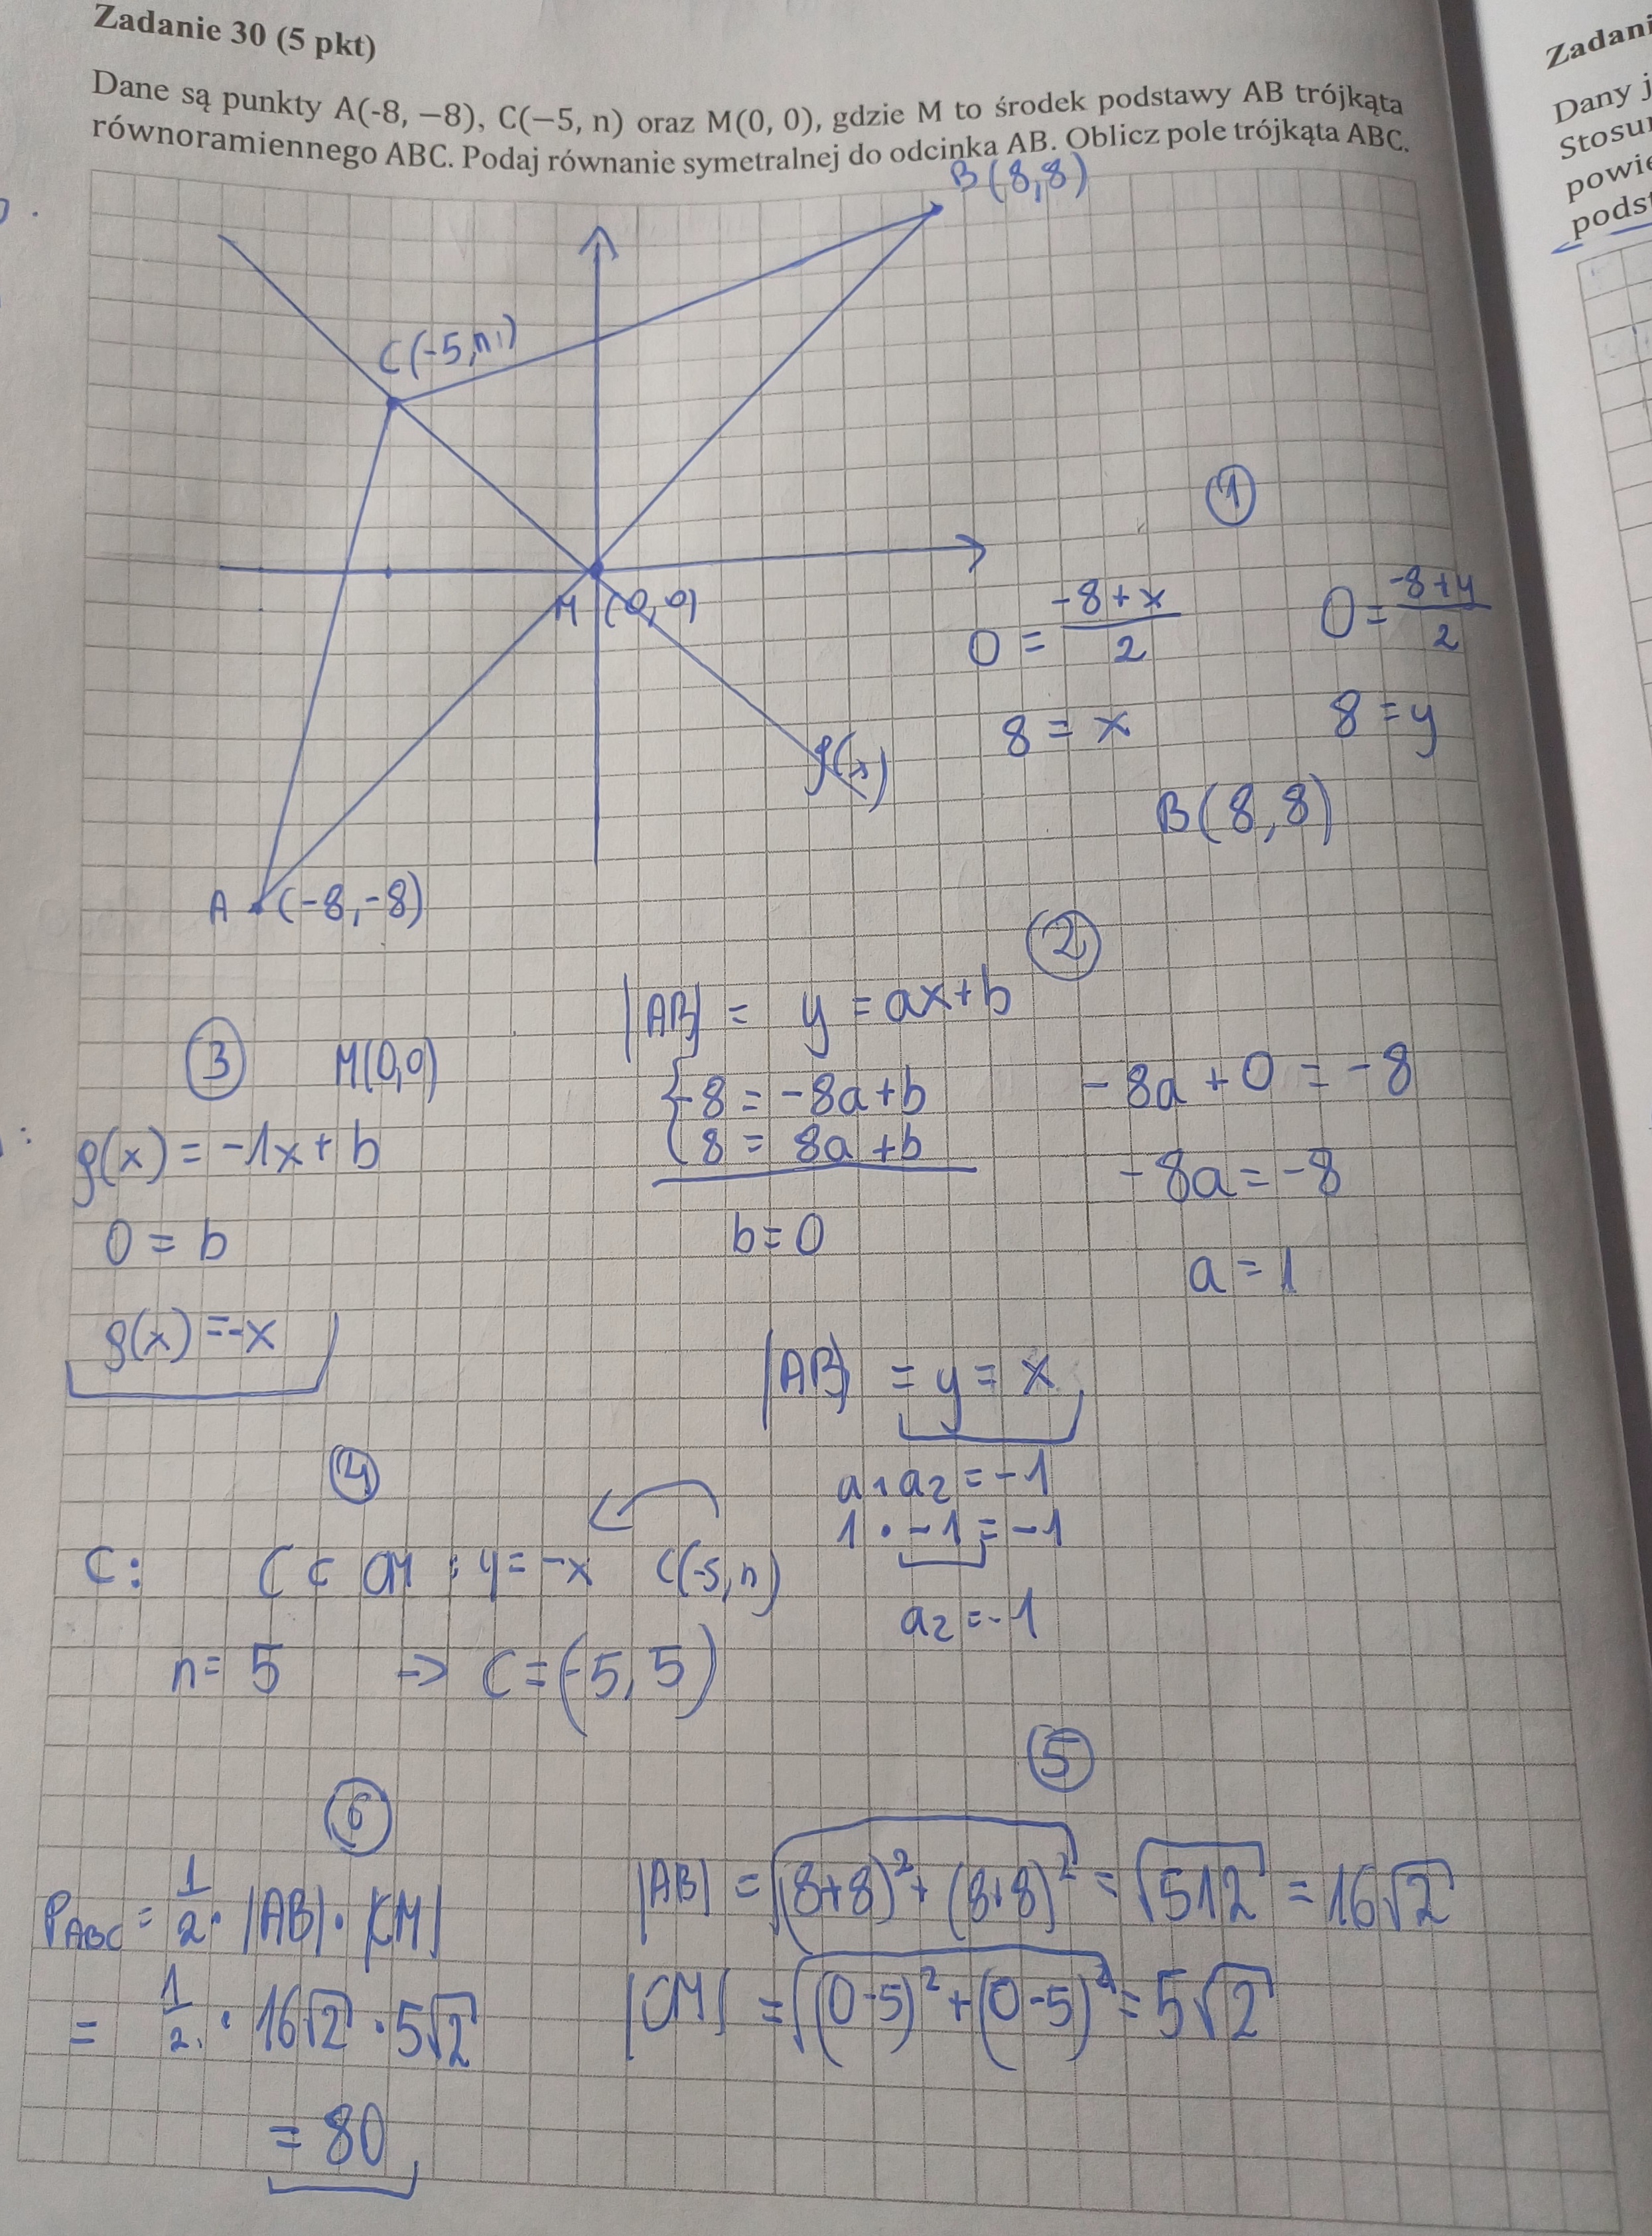 Zadanie 30 (5 pkt)
Dane są punkty A(-8, −8), C(−5, n) oraz M(0, 0), gdzie M to środek podstawy AB trójkąta
równoramiennego ABC. Podaj równanie symetralnej do odcinka AB. Oblicz pole trójkąta ABC.
B(8,8)
C(-5,n)
M (0,0)
f(x)
A (-8,-8)
①
0 = (-8+x)/2
0 = (-8+y)/2
8 = x
8 = y
B(8,8)
②
|AB| = y = ax+b
{-8 = -8a+b
8 = 8a+b
b=0
-8a+0 = -8
-8a = -8
a = 1
|AB| = y = x
a₁a₂ = -1
1 · -1 = -1
a₂ = -1
③ M(0,0)
f(x) = -1x+b
0 = b
f(x) = -x
④
C: C ∈ CM : y = -x C(-5,n)
n = 5 -> C = (-5,5)
⑤
|AB| = √((8+8)²+(8+8)²) = √512 = 16√2
|CM| = √((0-5)²+(0-5)²) = 5√2
⑥
P_ABC = 1/2 · |AB| · |CM|
= 1/2 · 16√2 · 5√2
= 80
Zadani
Dany j
Stosu
powie
podst